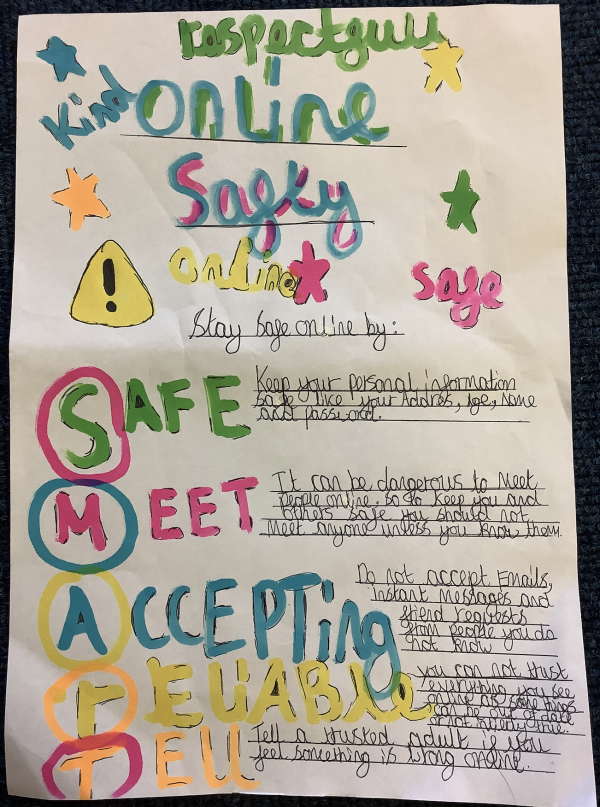 respectgull
Kind
Online
Safty
online
safe
Stay safe online by:
SAFE
Keep your personal information
safe like your Addres, Age, Name
and password.
MEET
It can be dangerous to meet
people online. so to keep you and
others safe you should not
meet anyone unless you know them.
ACCEPTing
Do not accept Emails,
instant messages and
friend requests
from people you do
not know
rELiABle
you can not trust
everything you see
online as some things
can be out of date
or not even true.
TEll
Tell a trusted adult if you
feel something is wrong online.